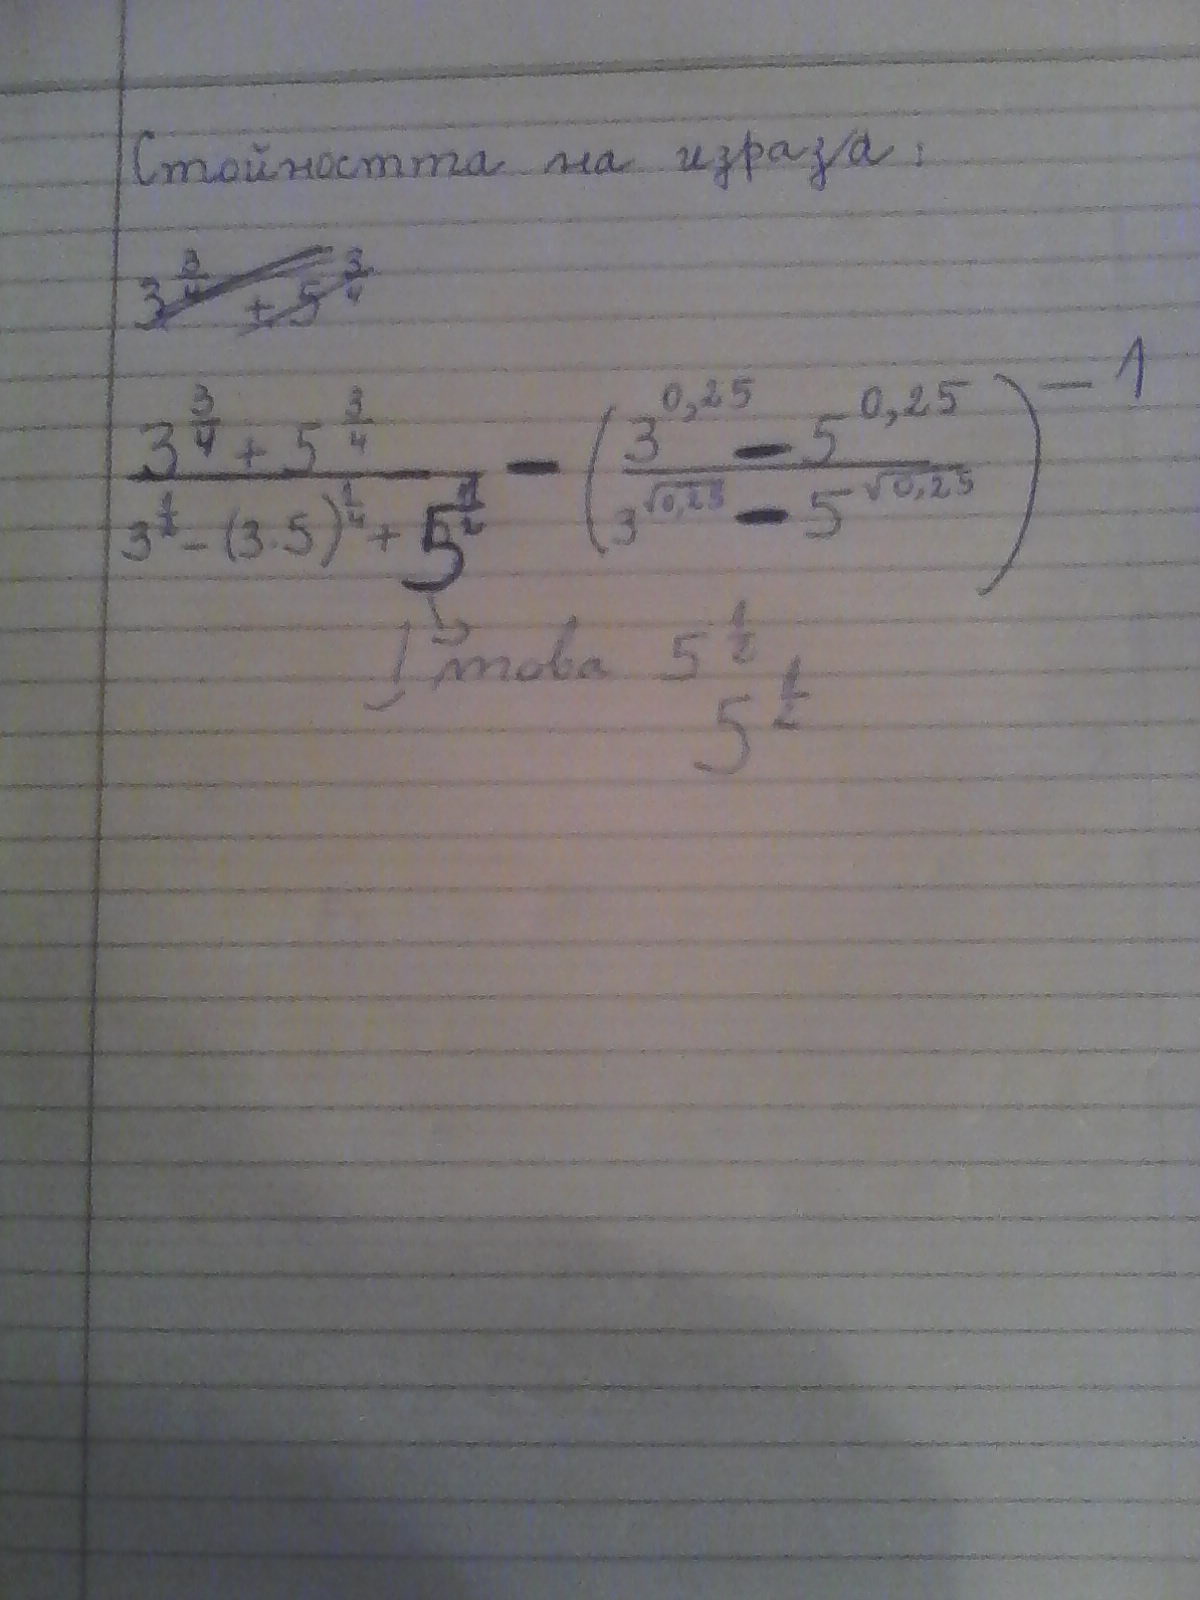 Стойността на израза:
3^{3/4} + 5^{3/4}
\frac{3^{\frac{3}{4}} + 5^{\frac{3}{4}}}{3^{\frac{1}{2}} - (3.5)^{\frac{1}{4}} + 5^{\frac{1}{2}}} - \left(\frac{3^{0,25} - 5^{0,25}}{3^{\sqrt{0,25}} - 5^{\sqrt{0,25}}}\right)^{-1}
това 5^{\frac{1}{2}}
5^{\frac{1}{2}}